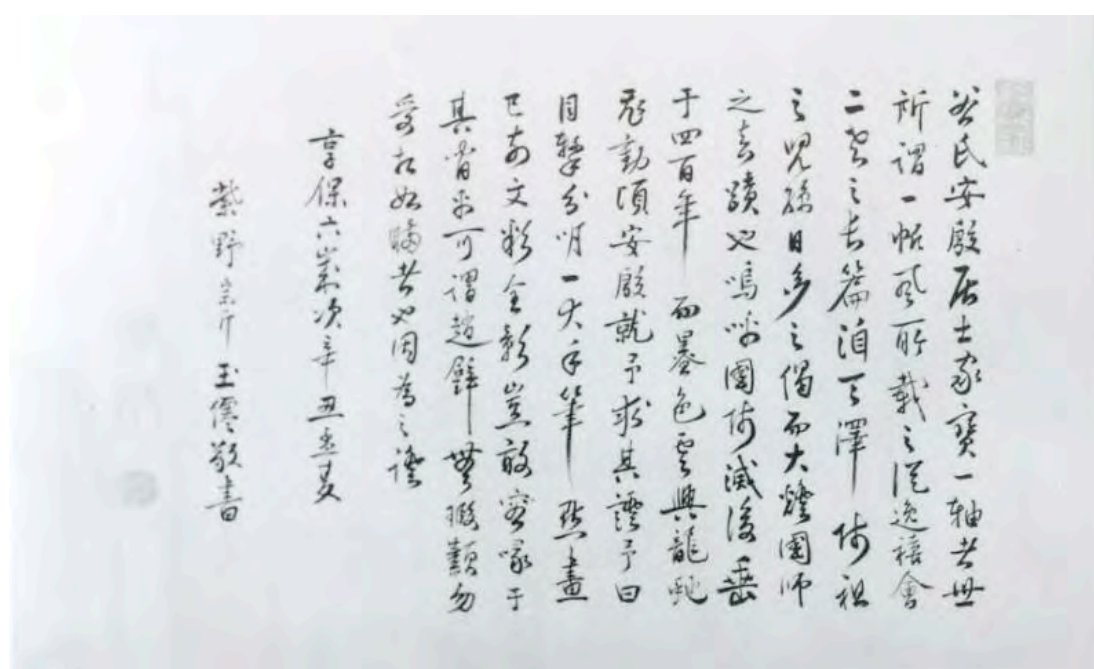 谷氏安殷居士家寶一軸者世
所謂一帖風所載之從逸禪會
二老之長篇洎天澤師祖
之兒孫日多之偈而大燈國師
之真蹟也嗚呼國師滅後垂
于四百年而墨色雲興龍蛇
飛動頃安殷就予求其證予曰
目擊分明一大手筆點畫
已前文彩全彰豈敢容喙于
其間乎可謂趙璧無瑕纇勿
受相如瞞者也因為之證
享保六歲次辛丑孟夏
紫野 玉僊敬書